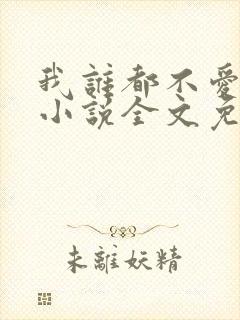 我誰都不愛
小說全文免
未離妖精